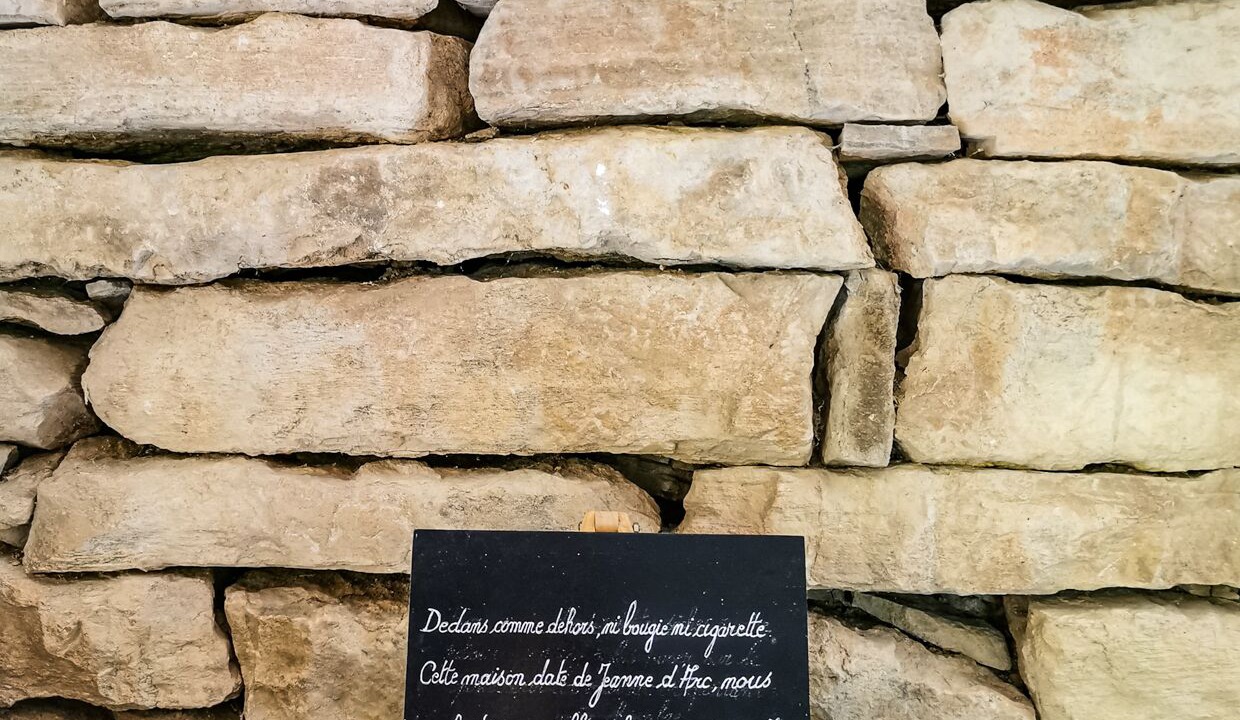 Dedans comme dehors, ni bougie ni cigarette
Cette maison date de Jeanne d'Arc, nous